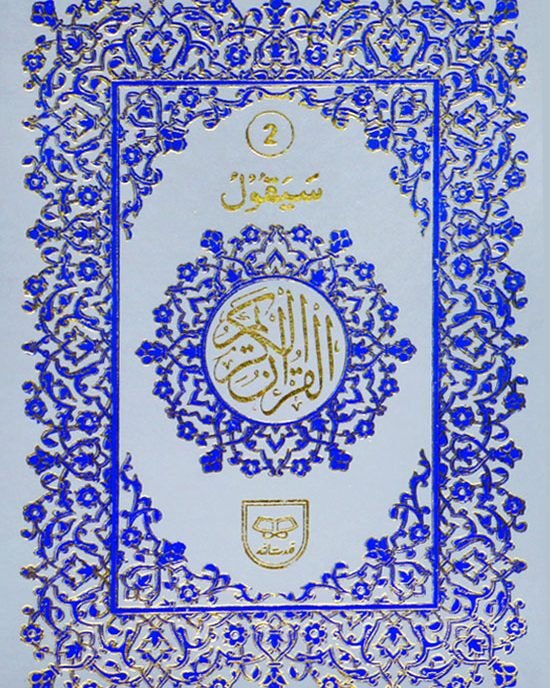 2
سَيَقُولُ
القرآن الكريم
قدرت الله